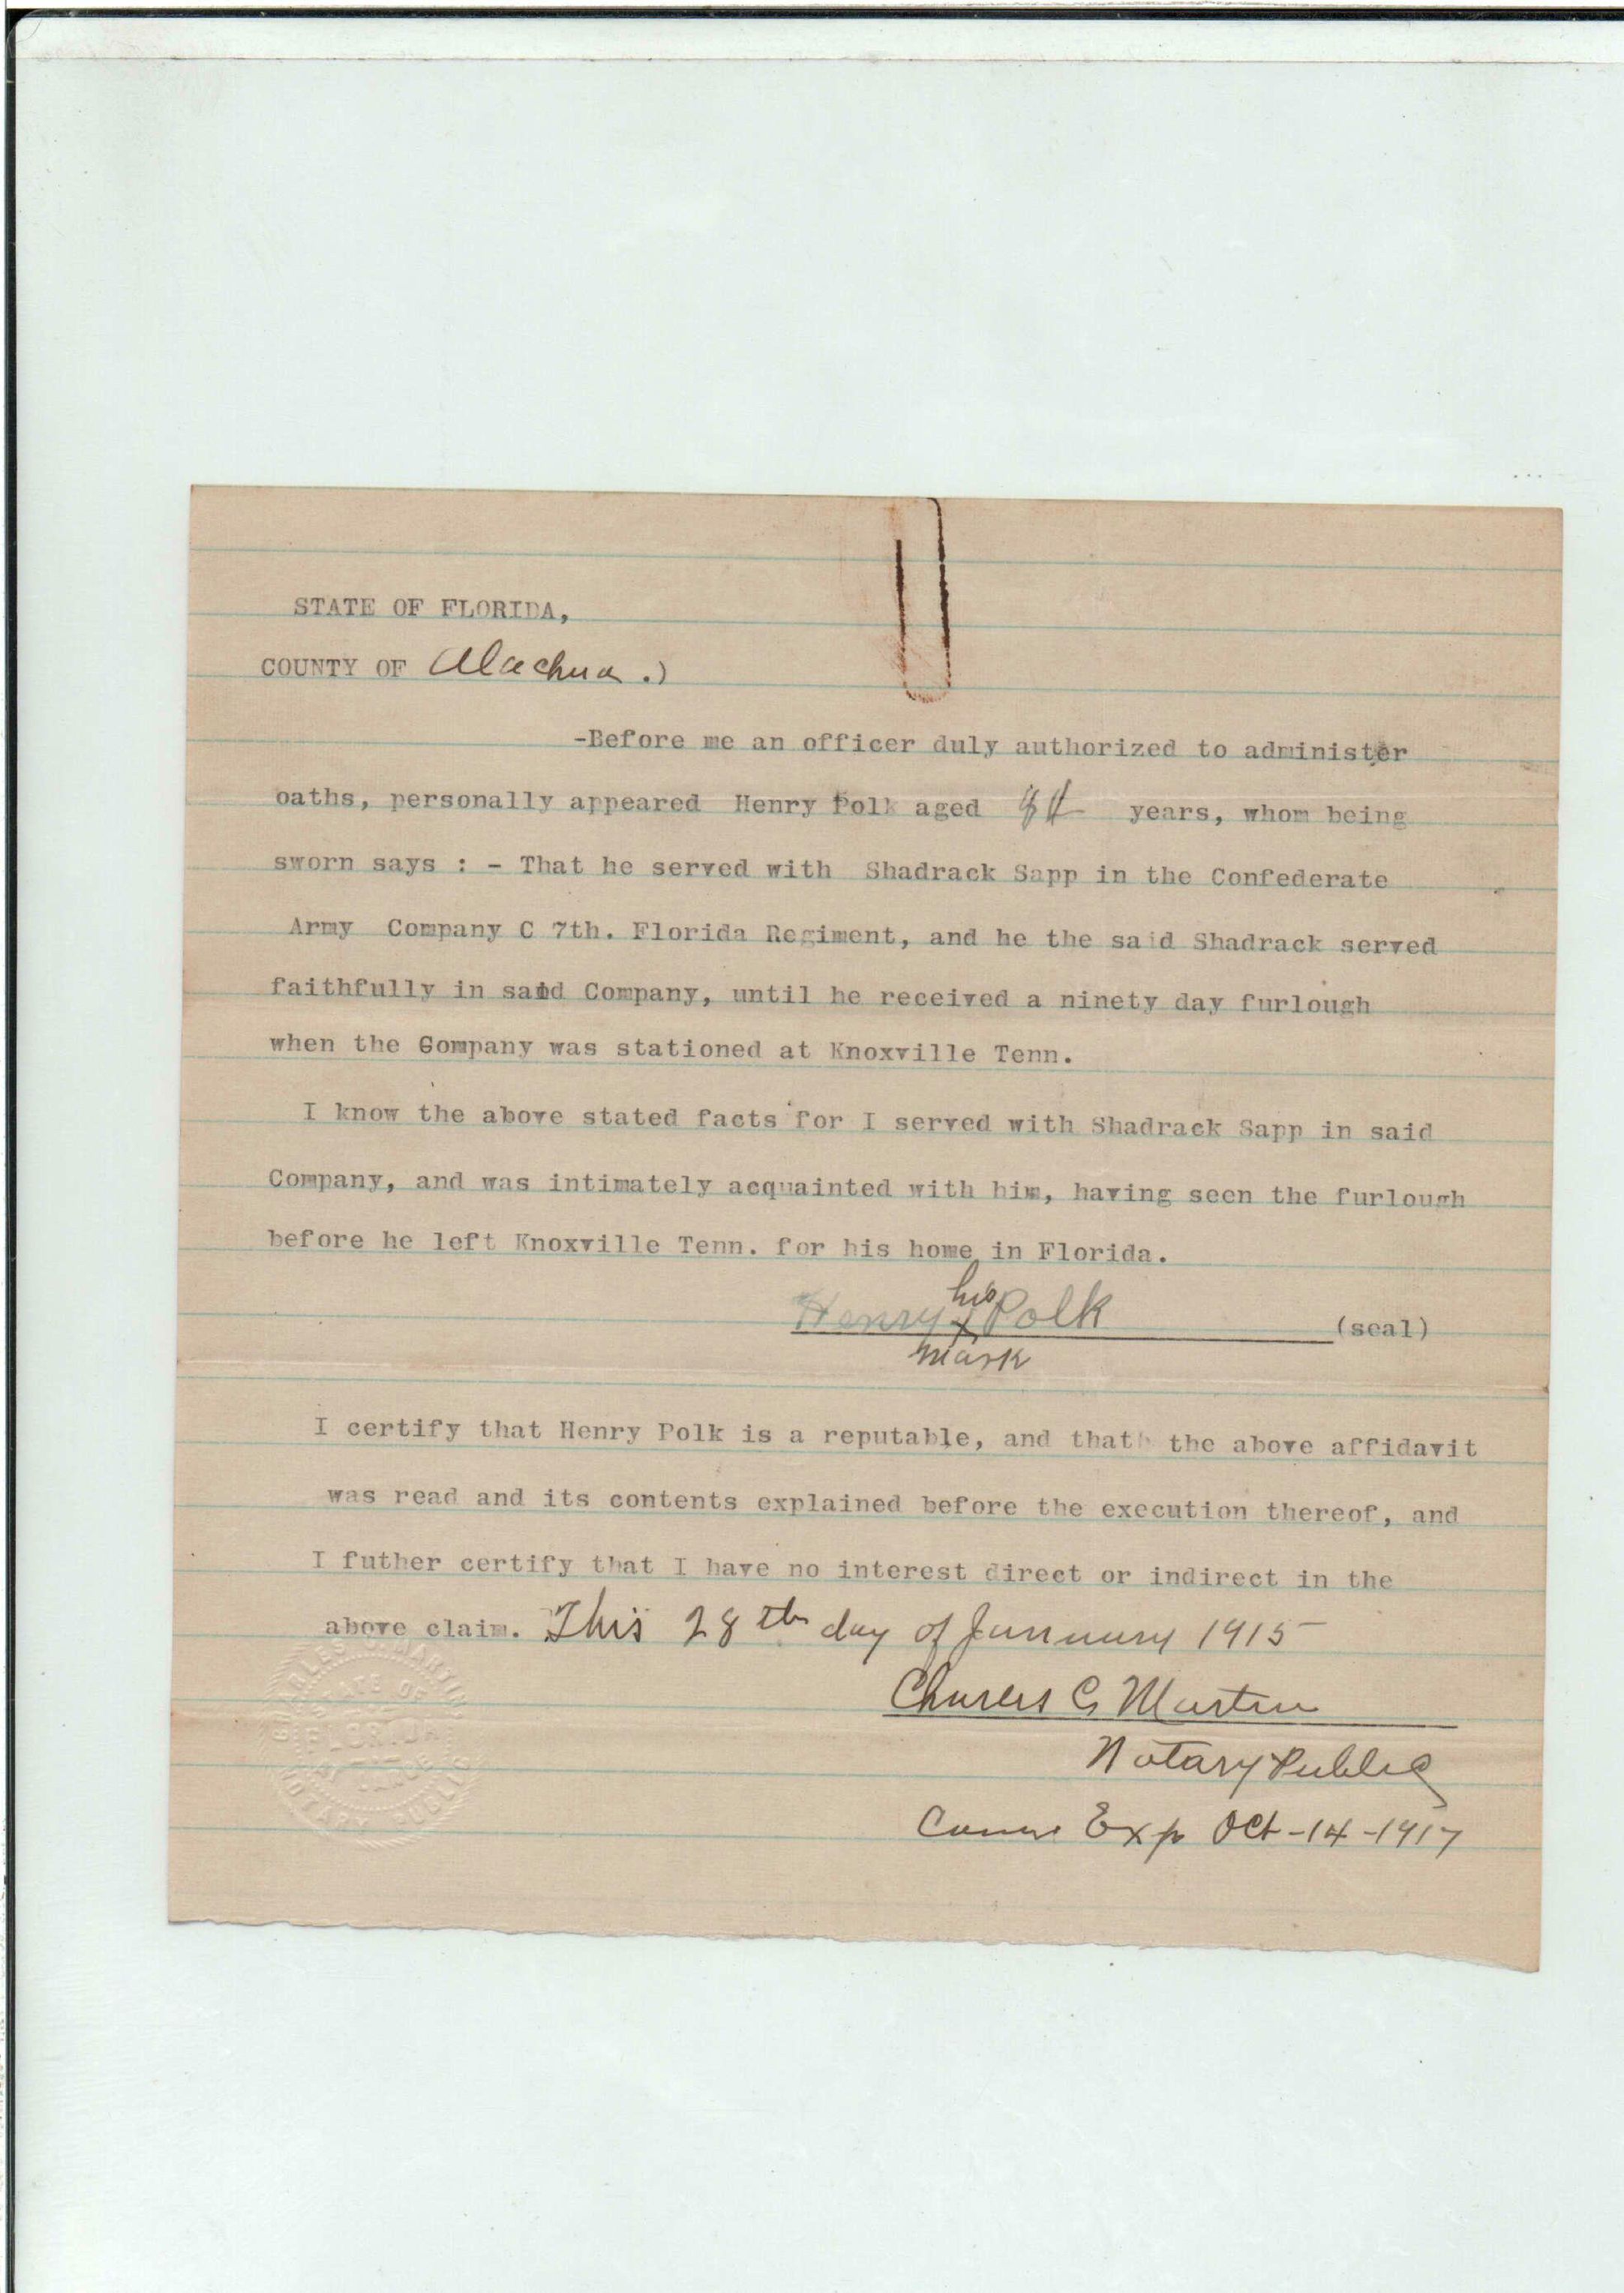 STATE OF FLORIDA,
COUNTY OF Alachua .)
-Before me an officer duly authorized to administer
oaths, personally appeared Henry Polk aged 84 years, whom being
sworn says : - That he served with Shadrack Sapp in the Confederate
Army Company C 7th. Florida Regiment, and he the said Shadrack served
faithfully in said Company, until he received a ninety day furlough
when the Company was stationed at Knoxville Tenn.
I know the above stated facts for I served with Shadrack Sapp in said
Company, and was intimately acquainted with him, having seen the furlough
before he left Knoxville Tenn. for his home in Florida.
his
Henry X Polk (seal)
mark
I certify that Henry Polk is a reputable, and that the above affidavit
was read and its contents explained before the execution thereof, and
I futher certify that I have no interest direct or indirect in the
above claim. This 28th day of January 1915
Charles G Martin
Notary Public
Comm Exp Oct-14-1917
STATE OF
FLORIDA
NOTARY PUBLIC